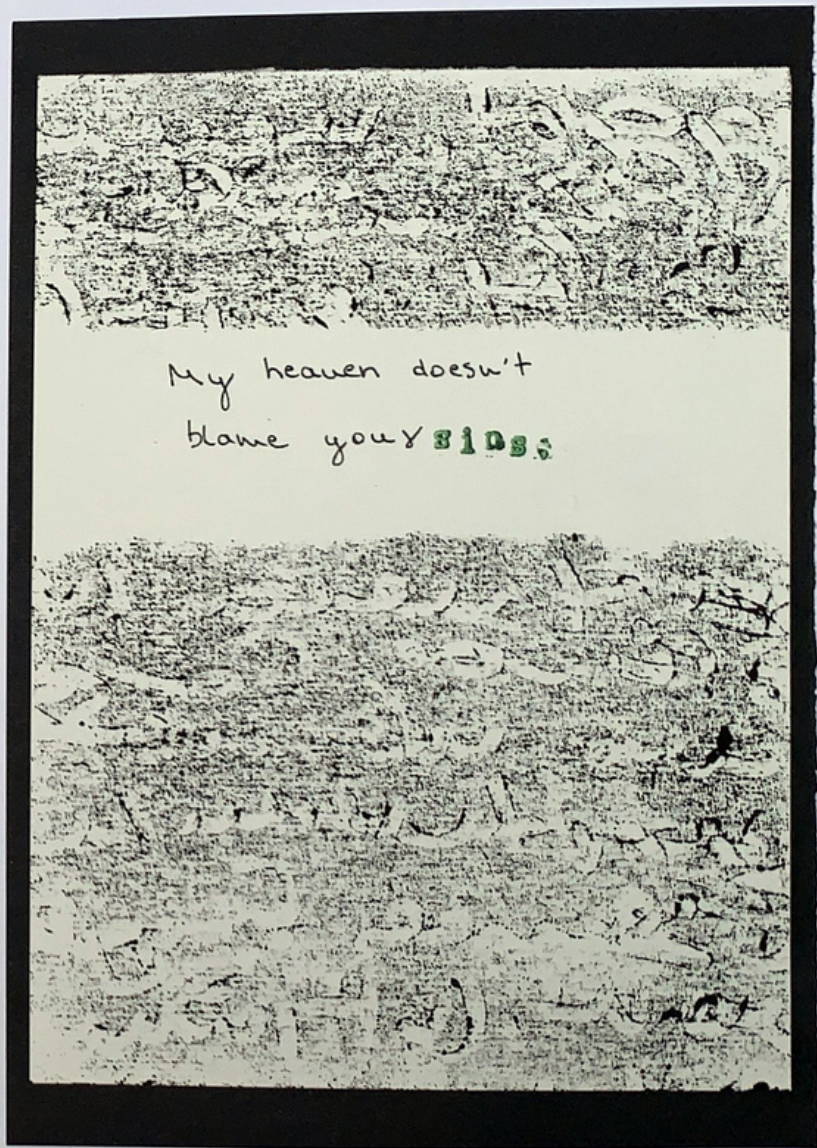 My heaven doesn't
blame your sins.